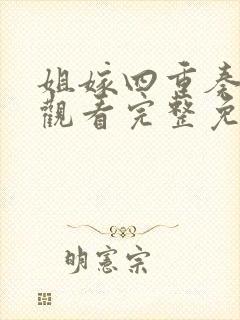 姐嫁四重奏
觀看完整免
明憲宗